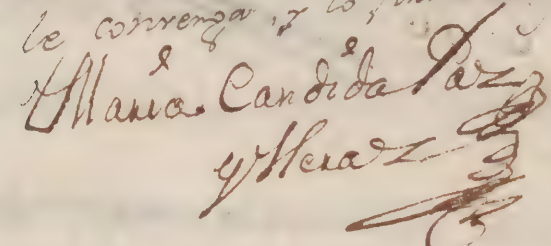 le convenga, y lo
Maria Candida Paz
y Mera